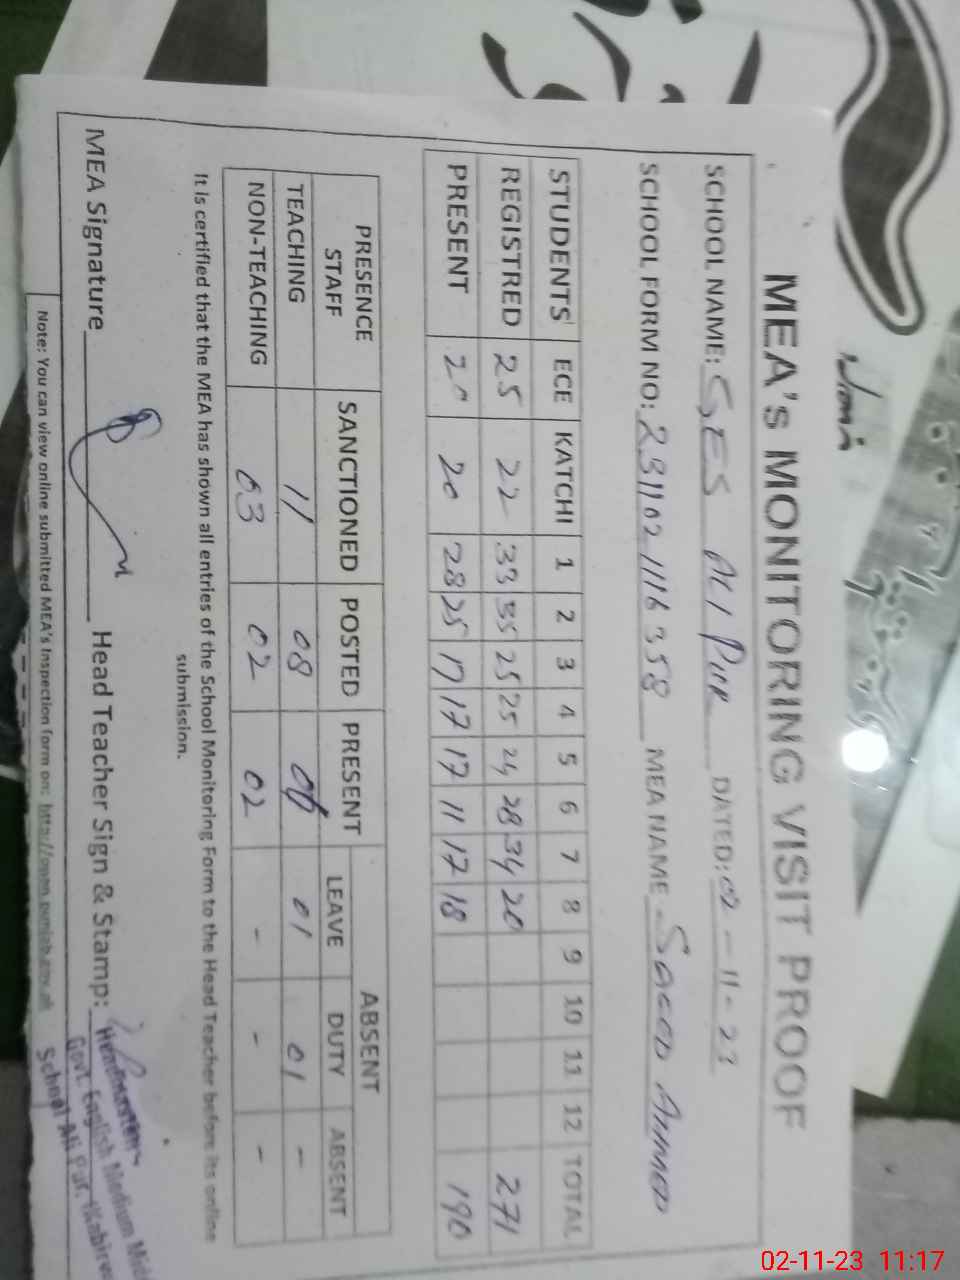 MEA's MONITORING VISIT PROOF
SCHOOL NAME: GES ALI PUR DATED: 02-11-23
SCHOOL FORM NO: 2311021116358 MEA NAME Saeed Ahmed
STUDENTS ECE KATCHI 1 2 3 4 5 6 7 8 9 10 11 12 TOTAL
REGISTRED 25 22 33 35 25 25 24 28 34 20 271
PRESENT 20 20 28 25 17 17 17 11 17 18 190
PRESENCE STAFF SANCTIONED POSTED PRESENT ABSENT
LEAVE DUTY ABSENT
TEACHING 11 08 06 01 01 -
NON-TEACHING 03 02 02 - - -
It is certified that the MEA has shown all entries of the School Monitoring Form to the Head Teacher before its online
submission.
MEA Signature Head Teacher Sign & Stamp:
Headmaster
Govt. English Medium
School Ali Pur
Note: You can view online submitted MEA's Inspection form on: http://open.punjab.gov.pk
02-11-23 11:17